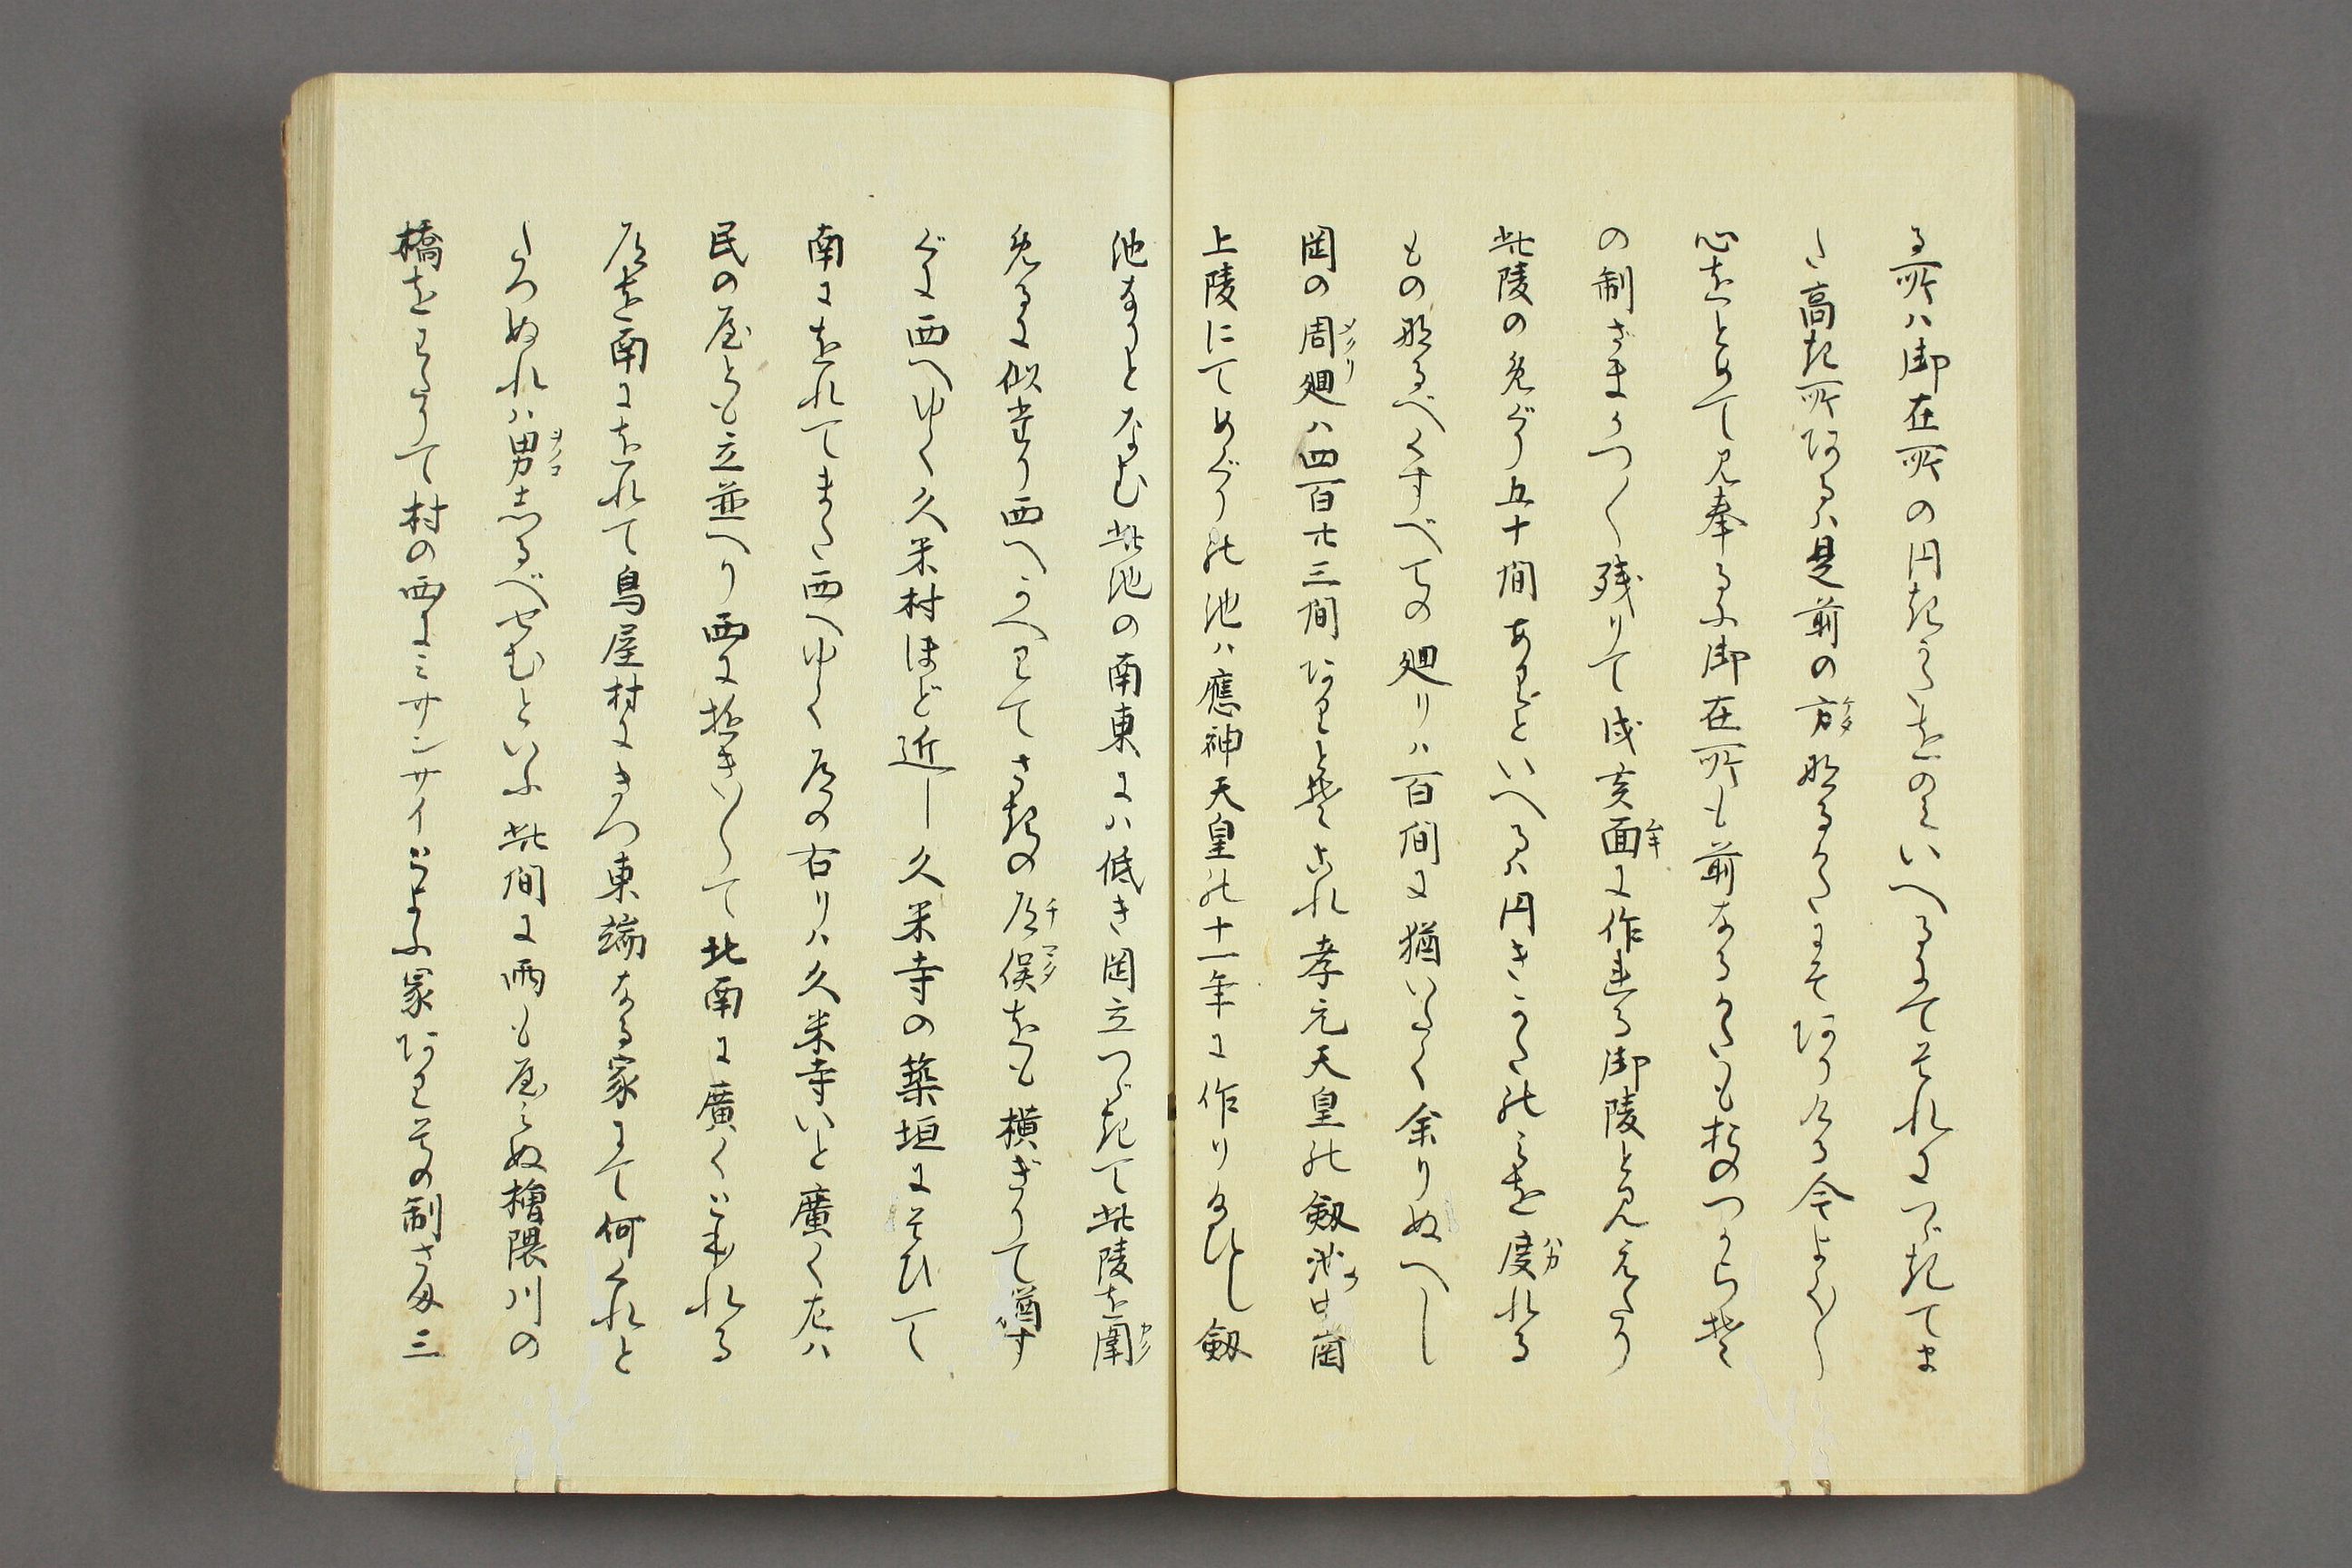 る所ハ御在所の円きかたをのミいへるにてそれにつゞきてま
た高き所あるハ是前の方なるかたにそありける今よく〳〵
心をとめて見奉るに御在所も前なるかたもおのつから其
の制さまかつ〳〵残りて戌亥面に作れる御陵と見えたり
此陵のめぐり五十間あまりといへるハ円きかたのミを度れる
もの那るべくすべての廻りハ百間に猶いたく余りぬへし
岡の周廻ハ四百廿三間ありと其これ孝元天皇の劔池中岡
上陵にてめぐりの池ハ應神天皇の十一年に作り給ひし劔
池なりとなむ此池の南東にハ低き岡立つゞきて此陵を圍
めるに似たり西へかへりてさきの道俣をも横ぎりて猶す
ぐに西へゆく久米村ほど近し久米寺の築垣にそひて
南にをれてまた西へゆく道の右りハ久米寺いと廣く左ハ
民の屋とも立並へり西に放きいてゝ北南に廣くこもれる
道を南にをれて鳥屋村にきつ東端なる家にて何くれと
たつぬれハ男志るべせむといふ此間に雨も屋ミぬ檜隈川の
橋をわたりて村の西にミサンサイといふ冢ありその制さま三